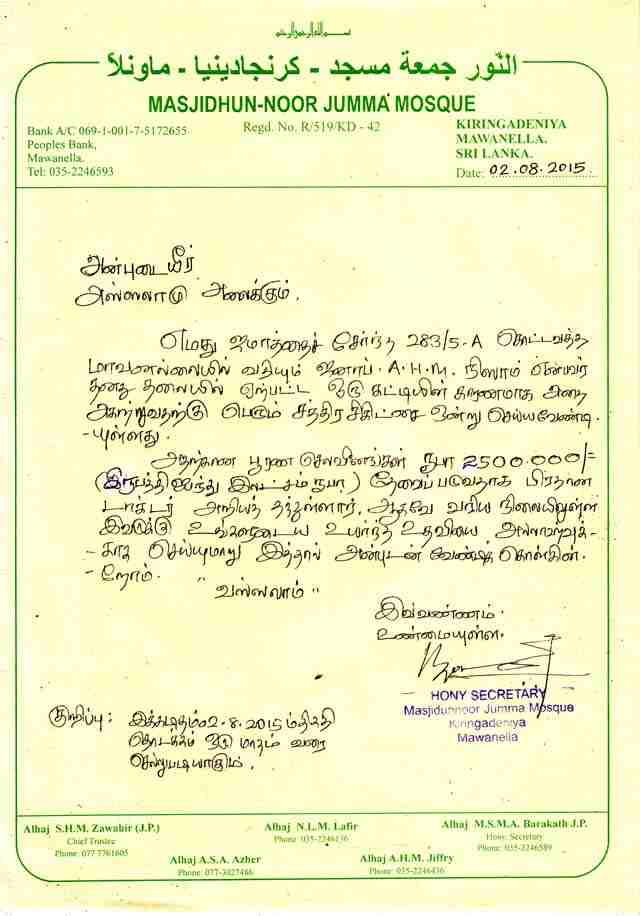 النور جمعة مسجد - كرنجادينيا - ماونلا
MASJIDHUN-NOOR JUMMA MOSQUE
Bank A/C 069-1-001-7-5172655
Peoples Bank,
Mawanella.
Tel: 035-2246593
Regd. No. R/519/KD - 42
KIRINGADENIYA
MAWANELLA.
SRI LANKA.
Date: 02.08.2015
அன்புடையீர்
அஸ்ஸலாமு அலைக்கும்.
எமது ஜமாத்தைச் சேர்ந்த 283/5-A கொட்டவத்த
மாவனல்லையில் வதியும் ஜனாப். A.H.M. நிஸாம் என்பவர்
தனது தலையில் ஏற்பட்ட ஒரு கட்டியின் காரணமாக அதை
அகற்றுவதற்கு பெரும் சத்திர சிகிட்சை ஒன்று செய்ய வேண்டி
-யுள்ளது.
அதற்கான பூரண செலவினங்கள் ரூபா 2500.000/=
(இருபத்தி ஐந்து இலட்சம் ரூபா) தேவைப்படுவதாக பிரதான
டாக்டர் அறியத் தந்துள்ளார். ஆகவே வறிய நிலையிலுள்ள
இவருக்கு உங்களுடைய உயர்ந்த உதவியை அல்லாஹ்வுக்-
-காக செய்யுமாறு இத்தால் அன்புடன் வேண்டிக் கொள்கின்
-றோம்.
"வஸ்ஸலாம்"
இவ்வண்ணம்.
உண்மையுள்ள.
HONY SECRETARY
Masjidunnoor Jumma Mosque
Kiringadeniya
Mawanella
குறிப்பு: இக்கடிதம் 02-8-2015ம் திகதி
தொடக்கம் ஒரு மாதம் வரை
செல்லுபடியாகும்.
Alhaj S.H.M. Zawahir (J.P.)
Chief Trustee
Phone: 077 7761605
Alhaj A.S.A. Azher
Phone: 077-3027486
Alhaj N.L.M. Lafir
Phone: 035-2246136
Alhaj A.H.M. Jiffry
Phone: 035-2246436
Alhaj M.S.M.A. Barakath J.P.
Hony. Secretary
Phone: 035-2246589